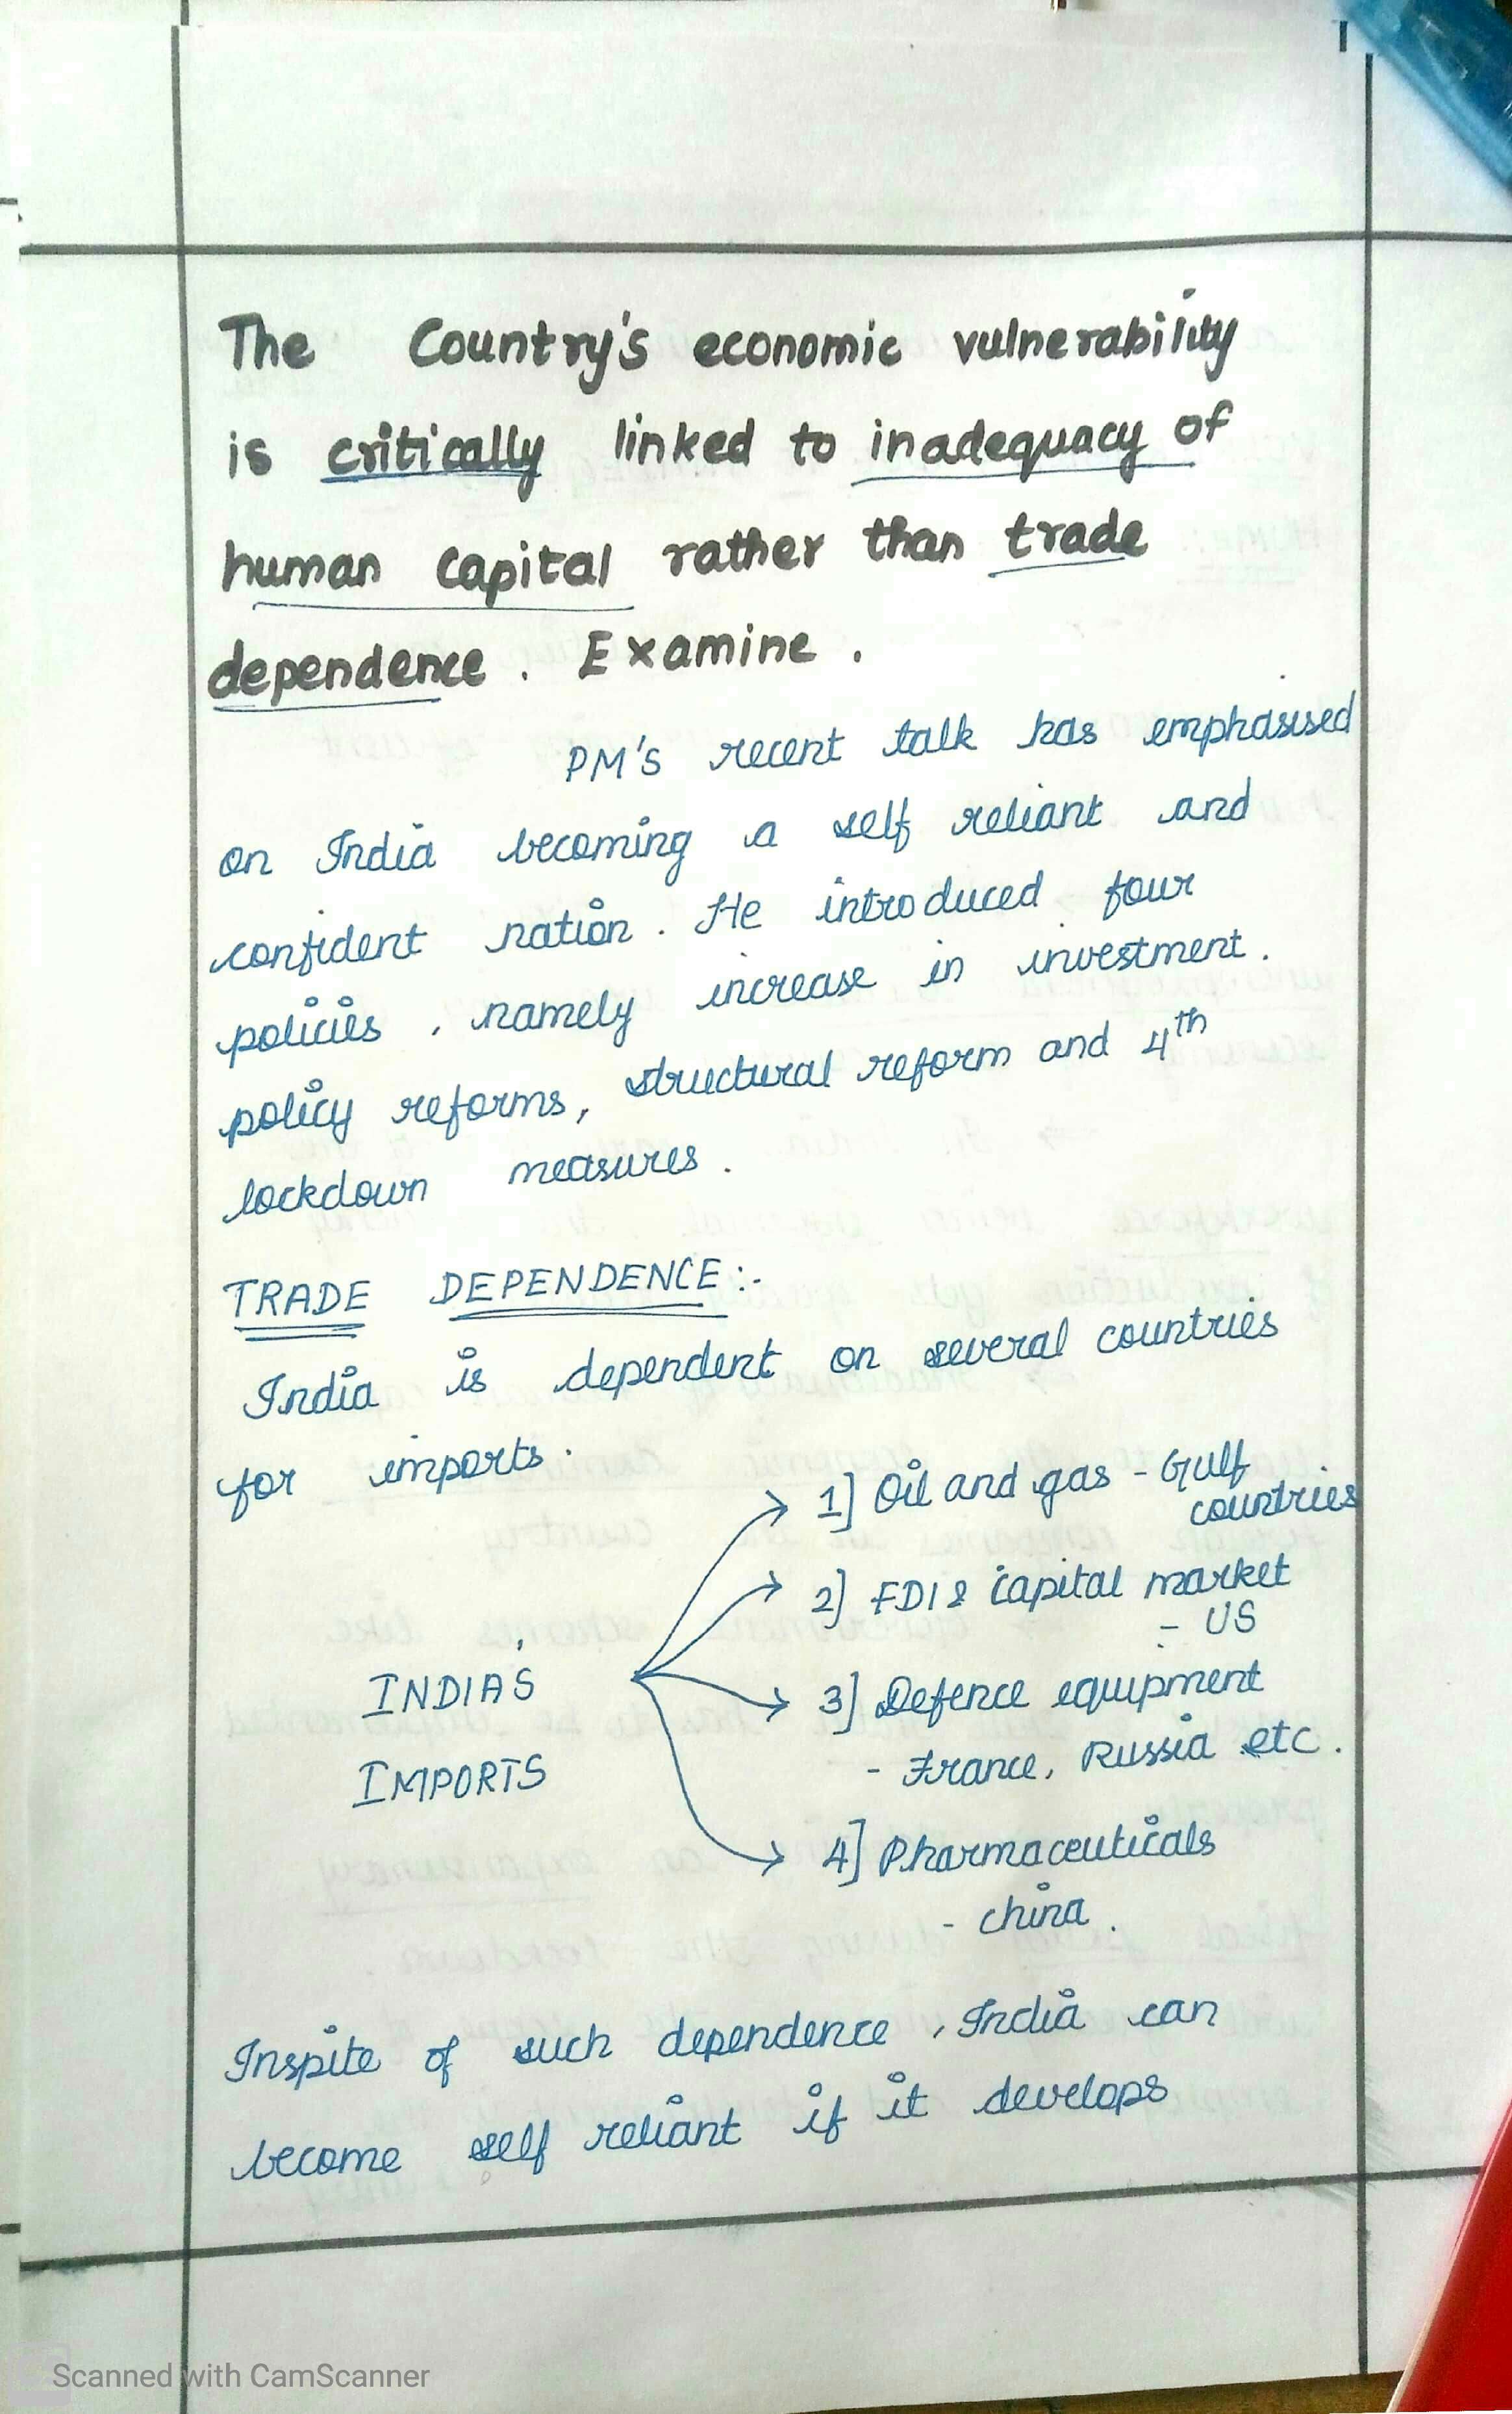 The Country's economic vulnerability
is critically linked to inadequacy of
human capital rather than trade
dependence. Examine.
PM's recent talk has emphasised
on India becoming a self reliant and
confident nation. He introduced four
policies, namely increase in investment.
policy reforms, structural reform and 4th
lockdown measures.
TRADE DEPENDENCE:-
India is dependent on several countries
for imports.
1] Oil and gas - Gulf
countries
2] FDI & capital market
- US
INDIA'S
3] Defence equipment
IMPORTS
- France, Russia etc.
4] Pharmaceuticals
- china.
Inspite of such dependence, India can
become self reliant if it develops
Scanned with CamScanner